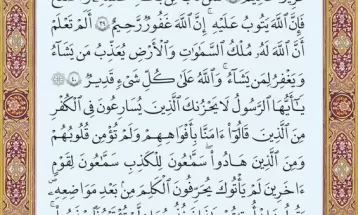 فَإِنَّ ٱللَّهَ يَتُوبُ عَلَيْهِ إِنَّ ٱللَّهَ غَفُورٌ رَّحِيمٌ ٣٩ أَلَمْ تَعْلَمْ
أَنَّ ٱللَّهَ لَهُۥ مُلْكُ ٱلسَّمَٰوَٰتِ وَٱلْأَرْضِ يُعَذِّبُ مَن يَشَآءُ
وَيَغْفِرُ لِمَن يَشَآءُ وَٱللَّهُ عَلَىٰ كُلِّ شَىْءٍ قَدِيرٌ ٤٠
يَٰٓأَيُّهَا ٱلرَّسُولُ لَا يَحْزُنكَ ٱلَّذِينَ يُسَٰرِعُونَ فِى ٱلْكُفْرِ
مِنَ ٱلَّذِينَ قَالُوٓا۟ ءَامَنَّا بِأَفْوَٰهِهِمْ وَلَمْ تُؤْمِن قُلُوبُهُمْ
وَمِنَ ٱلَّذِينَ هَادُوا۟ سَمَّٰعُونَ لِلْكَذِبِ سَمَّٰعُونَ لِقَوْمٍ
ءَاخَرِينَ لَمْ يَأْتُوكَ يُحَرِّفُونَ ٱلْكَلِمَ مِنۢ بَعْدِ مَوَاضِعِهِۦ